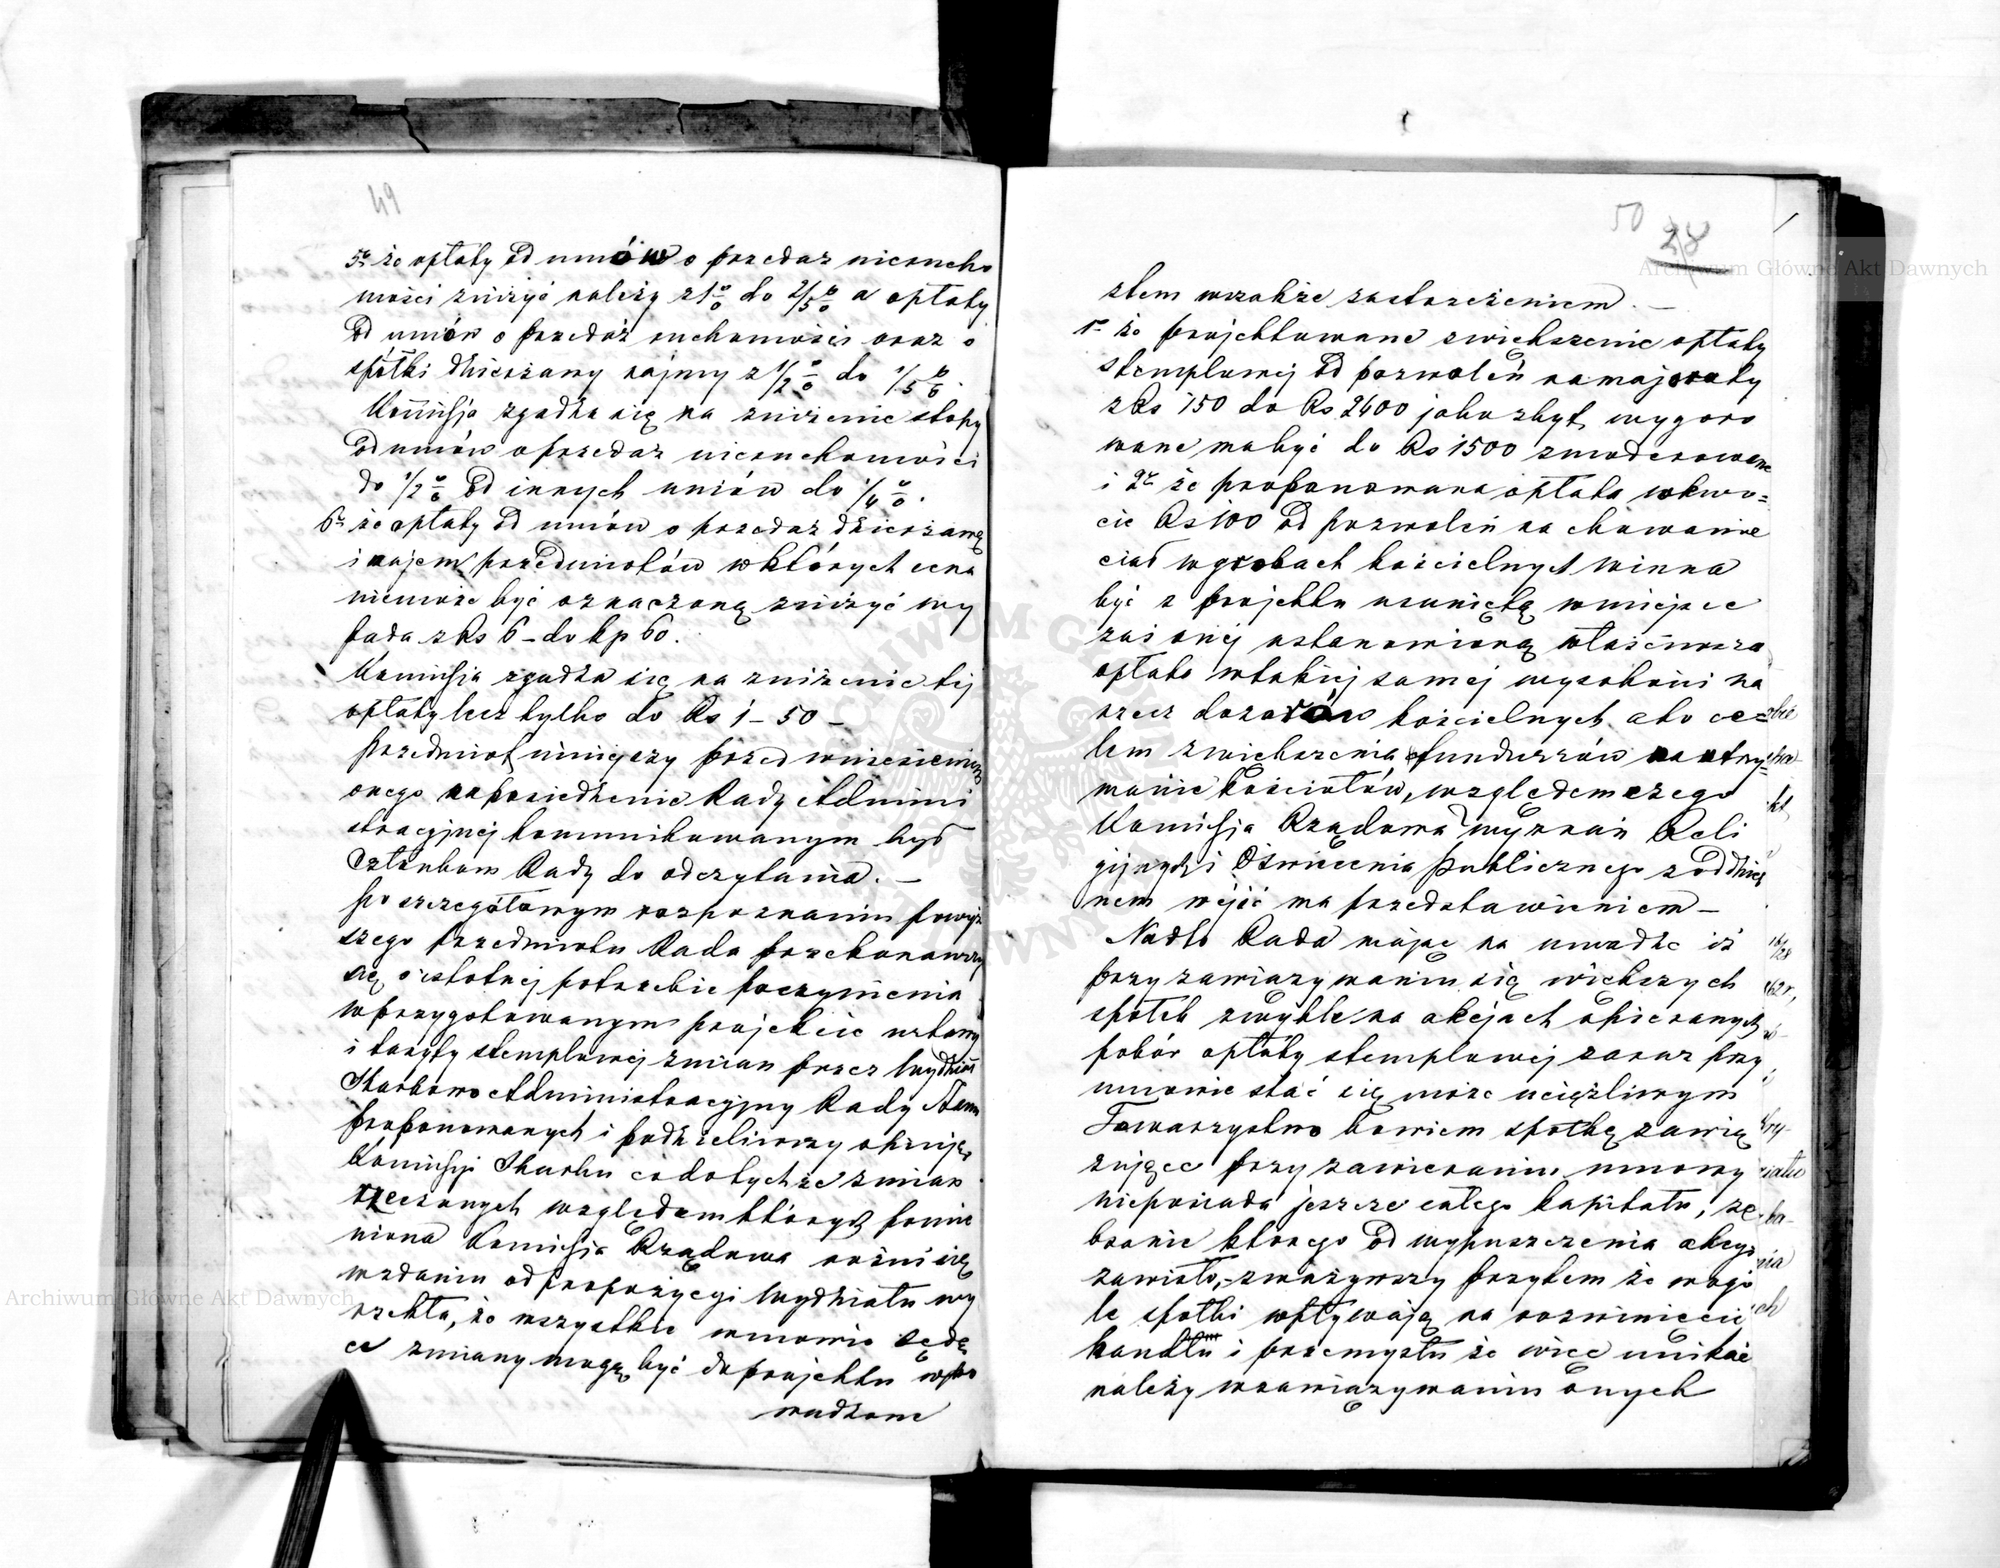 49
5o że opłaty od umów o przedaż nierucho
mości zniżyć należy z 1 % do 2/5 % a opłaty
od umów o przedaż ruchomości oraz o
spółki dzierżawy najmy z 1/2 % do 1/5 %.
Kommisja zgadza się na zniżenie stopy
od umów o przedaż nieruchomości
do 1/2 % od innych umów do 1/4 %.
6o że opłaty od umów o przedaż dzierżawę
i najem przedmiotów w których cena
niemoże być oznaczoną zniżyć wy
pada z Rs 6 – do kp 60.
Kommisja zgadza się na zniżenie tej
opłaty lecz tylko do Rs 1 – 50 –
Przedmiot niniejszy przed wniesieniem
onego na posiedzenie Rady Admini
stracyjnej kommunikowanym był
Członkom Rady do odczytania. –
Po szczegółowym rozpoznaniu powyż
szego przedmiotu Rada przekonawszy
się o istotnej potrzebie poczynienia
w przygotowanym projekcie ustawy
i taryfy stemplowej zmian przez Wydział
Skarbowo Administracyjny Rady Stanu
proponowanych i podzieliwszy opinję
Kommisji Skarbu co do tychże zmian
rzeczonych względem których pomie
niona Kommisja Rządowa różni się
w zdaniu od propozycyi Wydziału wy
rzekła, że wszystkie w mowie będą
ce zmiany mogą być do projektu wpro
wadzone
50
28
z tem wszakże zastrzeżeniem. –
1o że projektowane zwiększenie opłaty
stemplowej od pozwoleń na majoraty
z Rs 150 do Rs 2400 jako zbyt wygóro
wane ma być do Rs 1500 zmoderowane
i 2o że proponowana opłata w kwo=
cie Rs 100 od pozwoleń na chowanie
ciał w grobach kościelnych winna
być z projektu usuniętą w miejsce
zaś onej ustanowioną właściwsza
opłata w takiej samej wysokości na
rzecz dozorów kościelnych ato ce=
lem zwiększenia funduszów na utrzy=
manie Kościołów, względem czego
Kommisja Rządowa Wyznań Reli
gijnych i Oświecenia Publicznego z oddziel
nem wejść ma przedstawieniem –
Nadto Rada mając na uwadze iż
przy zawiązywaniu się większych
spółek zwykle na akcjach opieranych
pobór opłaty stemplowej zaraz przy
umowie stać się może uciążliwym
Towarzystwo bowiem spółkę zawią
zujące przy zawieraniu umowy
nieposiada jeszcze całego kapitału, ze
branie którego od wypuszczenia akcyj
zawisło, – zważywszy przytem że wogó
le spółki wpływają na rozwinięcie
handlu i przemysłu że więc unikać
należy w zawiązywaniu onych